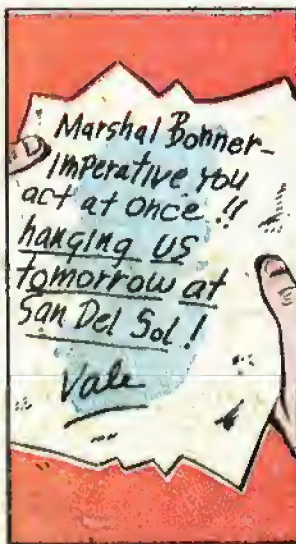 Marshal Bonner-
Imperative you
act at once!!
hanging us
tomorrow at
San Del Sol!
Vale